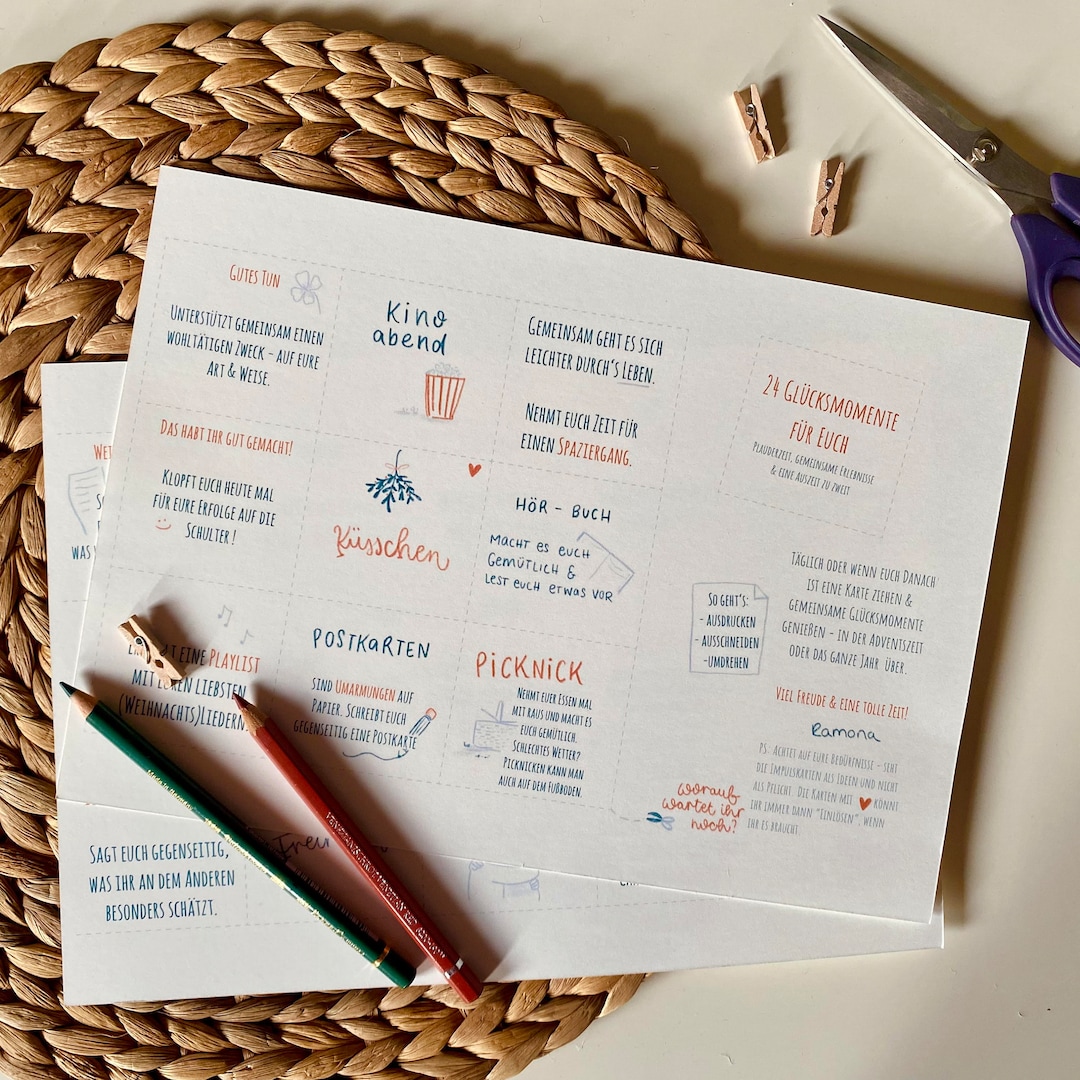 GUTES TUN
UNTERSTÜTZT GEMEINSAM EINEN
WOHLTÄTIGEN ZWECK – AUF EURE
ART & WEISE.
Kino
abend
GEMEINSAM GEHT ES SICH
LEICHTER DURCH'S LEBEN.
NEHMT EUCH ZEIT FÜR
EINEN SPAZIERGANG.
DAS HABT IHR GUT GEMACHT!
KLOPFT EUCH HEUTE MAL
FÜR EURE ERFOLGE AUF DIE
SCHULTER!
Küsschen
HÖR - BUCH
MACHT ES EUCH
GEMÜTLICH &
LEST EUCH ETWAS VOR
EINE PLAYLIST
MIT EUREN LIEBSTEN
(WEIHNACHTS)LIEDERN
POSTKARTEN
SIND UMARMUNGEN AUF
PAPIER. SCHREIBT EUCH
GEGENSEITIG EINE POSTKARTE
PICKNICK
NEHMT EUER ESSEN MAL
MIT RAUS UND MACHT ES
EUCH GEMÜTLICH.
SCHLECHTES WETTER?
PICKNICKEN KANN MAN
AUCH AUF DEM FUẞBODEN.
24 GLÜCKSMOMENTE
FÜR EUCH
PLAUDERZEIT, GEMEINSAME ERLEBNISSE
& EINE AUSZEIT ZU ZWEIT
SO GEHT'S:
- AUSDRUCKEN
- AUSSCHNEIDEN
-UMDREHEN
TÄGLICH ODER WENN EUCH DANACH
IST EINE KARTE ZIEHEN &
GEMEINSAME GLÜCKSMOMENTE
GENIEẞEN – IN DER ADVENTSZEIT
ODER DAS GANZE JAHR ÜBER.
VIEL FREUDE & EINE TOLLE ZEIT!
Ramona
PS: ACHTET AUF EURE BEDÜRFNISSE – SEHT
DIE IMPULSKARTEN ALS IDEEN UND NICHT
ALS PFLICHT. DIE KARTEN MIT ♥ KÖNNT
IHR IMMER DANN "EINLÖSEN", WENN
IHR ES BRAUCHT.
worauf
wartet ihr
noch?
WAS
SAGT EUCH GEGENSEITIG,
WAS IHR AN DEM ANDEREN
BESONDERS SCHÄTZT.